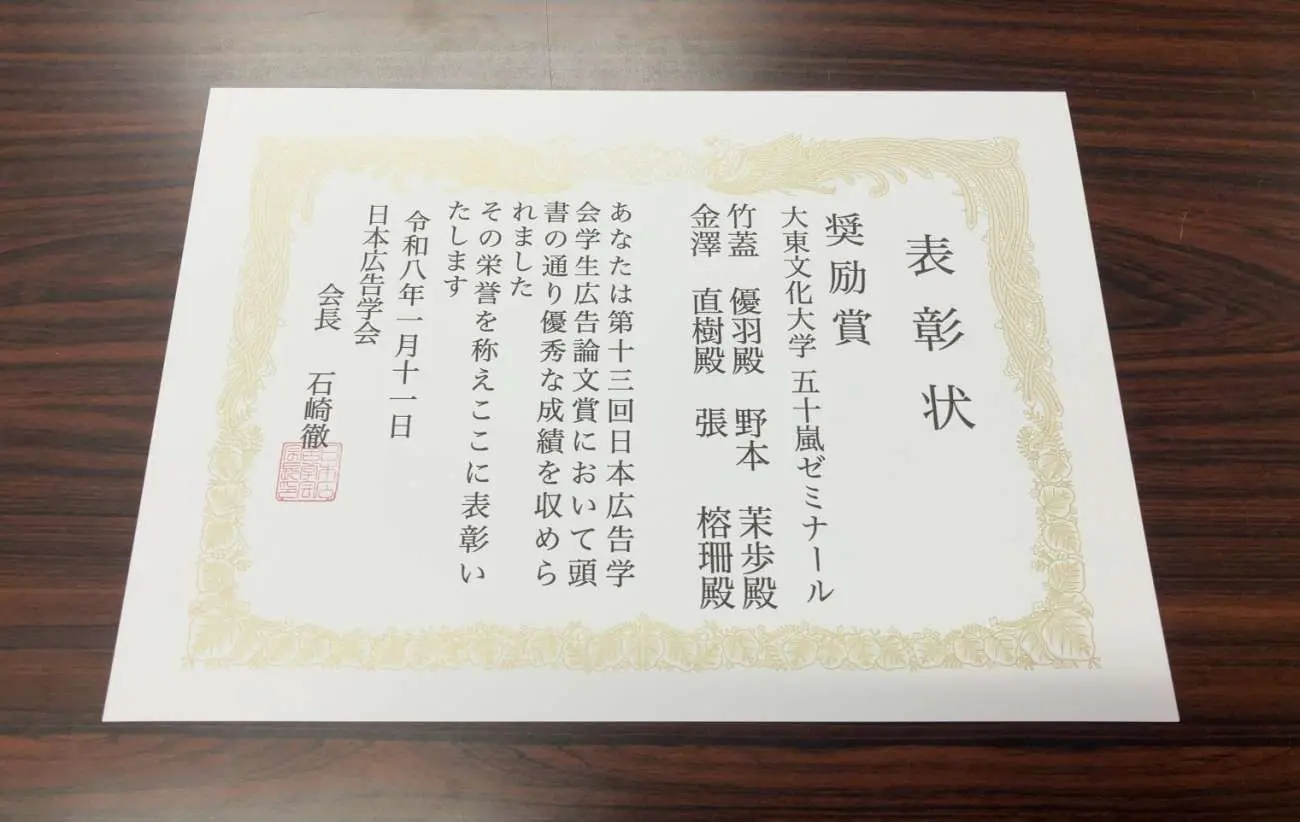 表彰状
奨励賞
大東文化大学 五十嵐ゼミナール
竹蓋 優羽殿 野本 茉歩殿
金澤 直樹殿 張 榕珊殿
あなたは第十三回日本広告学
会学生広告論文賞において頭
書の通り優秀な成績を収めら
れました
その栄誉を称えここに表彰い
たします
令和八年一月十一日
日本広告学会
会長 石崎徹